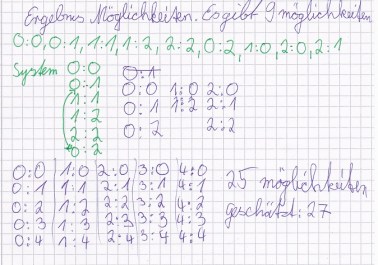 Ergebnis Möglichkeiten. Es gibt 9 möglichkeiten
0:0, 0:1, 1:1, 1:2, 2:2, 0:2, 1:0, 2:0, 2:1
System 0:0
0:1
1:1
1:2
2:2
0:2
0:1
0:0 1:0 2:0
0:1 1:2 2:1
0:2 2:2
0:0 1:0 2:0 3:0 4:0
0:1 1:1 2:1 3:1 4:1
0:2 1:2 2:2 3:2 4:2
0:3 1:3 2:3 3:3 4:3
0:4 1:4 2:4 3:4 4:4
25 möglichkeiten
geschätzt: 27